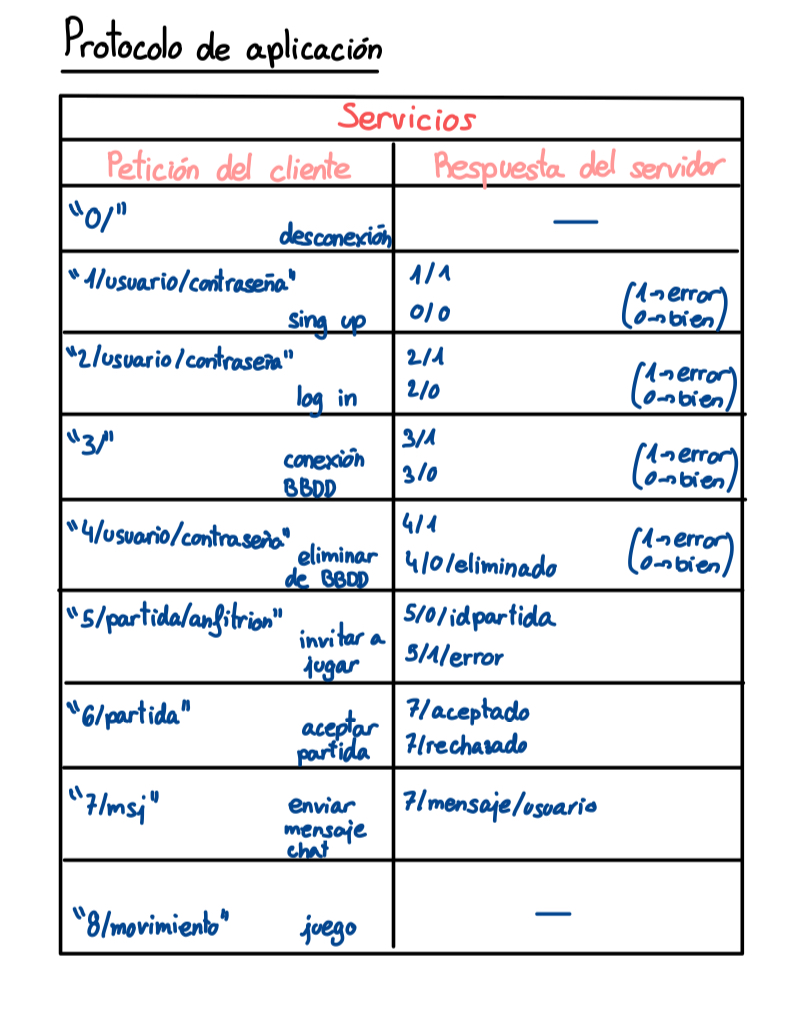 Protocolo de aplicación
Servicios
Petición del cliente
Respuesta del servidor
"0/"
desconexión
—
"1/usuario/contraseña"
sing up
1/1
0/0
(1→error)
(0→bien)
"2/usuario/contraseña"
log in
2/1
2/0
(1→error)
(0→bien)
"3/"
conexión
BBDD
3/1
3/0
(1→error)
(0→bien)
"4/usuario/contraseña"
eliminar
de BBDD
4/1
4/0/eliminado
(1→error)
(0→bien)
"5/partida/anfitrion"
invitar a
jugar
5/0/idpartida
5/1/error
"6/partida"
aceptar
partida
7/aceptado
7/rechasado
"7/msj"
enviar
mensaje
chat
7/mensaje/usuario
"8/movimiento"
juego
—